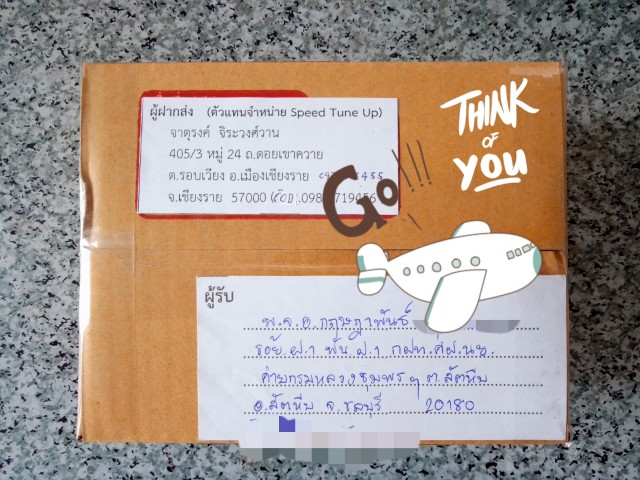 ผู้ฝากส่ง (ตัวแทนจำหน่าย Speed Tune Up)
จาตุรงค์ จิระวงศ์วาน
405/3 หมู่ 24 ถ.ดอยเขาควาย
ต.รอบเวียง อ.เมืองเชียงราย
จ.เชียงราย 57000
THINK
OF
YOU
Go!!!
ผู้รับ
พ.จ.อ.กฤษฎาพันธ์
ร้อย.ฝ.1 พัน.ฝ.1 กฝท.ศฝ.นย.
ค่ายกรมหลวงชุมพรฯ ต.สัตหีบ
อ.สัตหีบ จ.ชลบุรี 20180